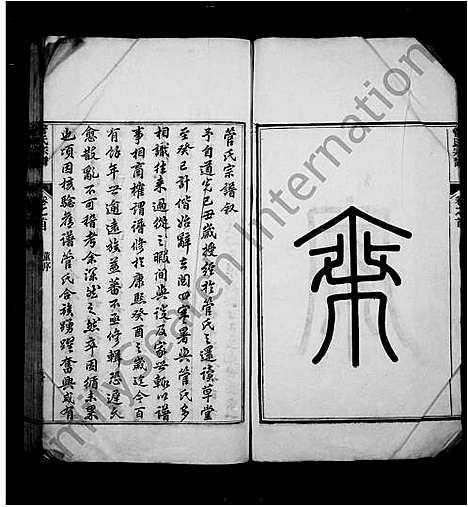 管氏宗譜叙
予自道光己丑歲授經於管氏之還讀草堂
至癸巳計偕始辭去閱四寒暑與管氏多
相識往來過從之暇間與談及家世輒以譜
事相商榷謂譜修於康熙癸酉之歲迄今百
有餘年世逾遠族益蕃不亟修輯恐渙氏
愈散亂不可稽考余深然之然卒因循未果
也項因核驗舊譜管氏合族踴躍奮興咸有
董序